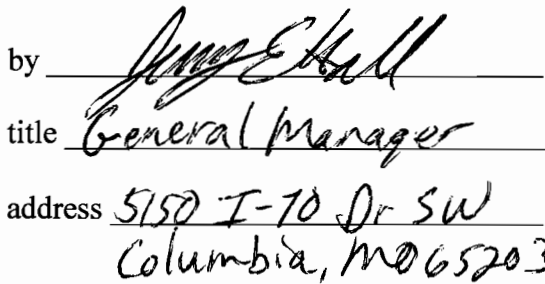 by E Hall
title General Manager
address 5150 I-70 Dr SW
Columbia, MO 65203